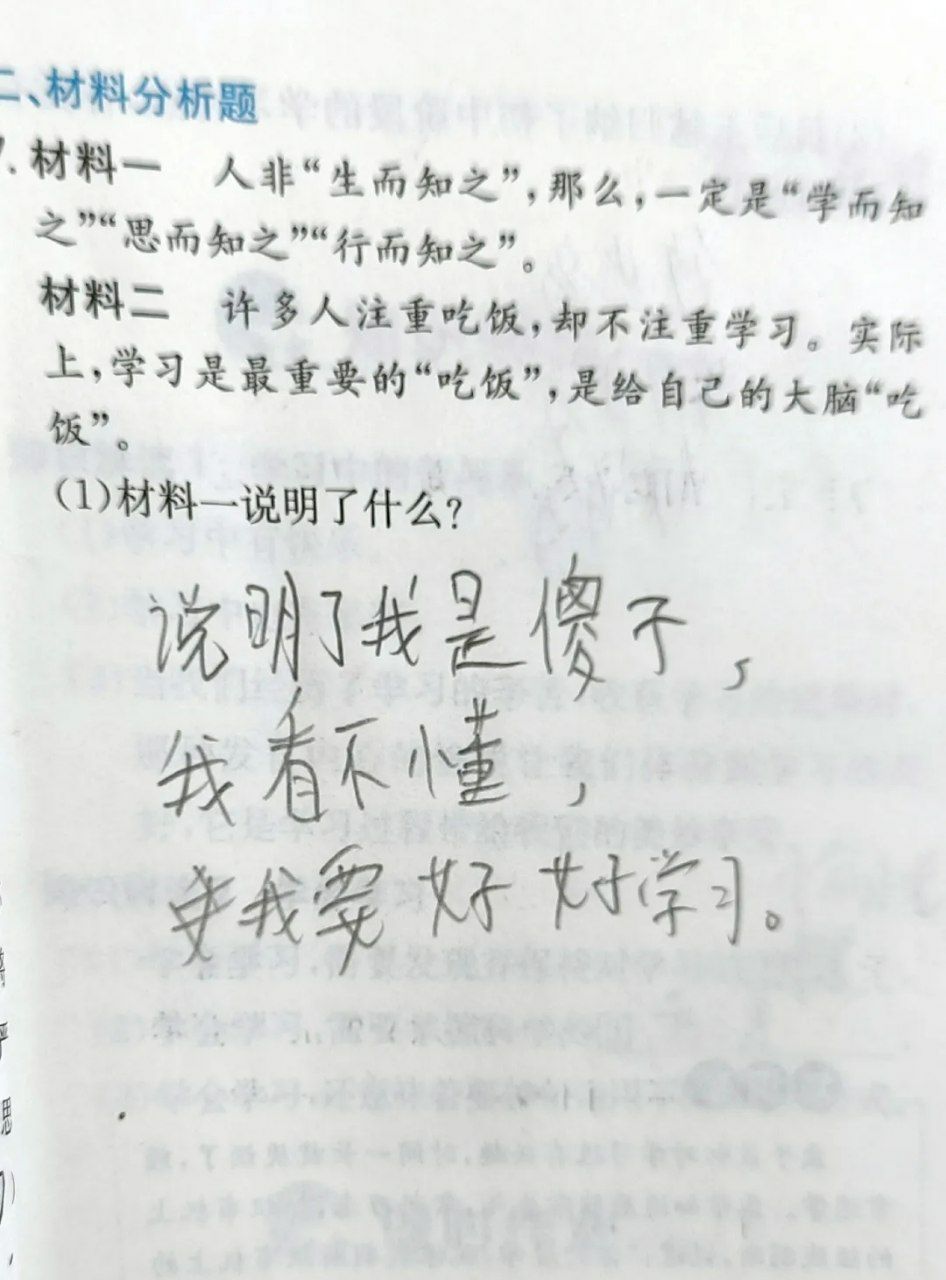 二、材料分析题
7. 材料一 人非“生而知之”，那么，一定是“学而知
之”“思而知之”“行而知之”。
材料二 许多人注重吃饭，却不注重学习。实际
上，学习是最重要的“吃饭”，是给自己的大脑“吃
饭”。
(1)材料一说明了什么？
说明了我是傻子，
我看不懂，
我要好好学习。